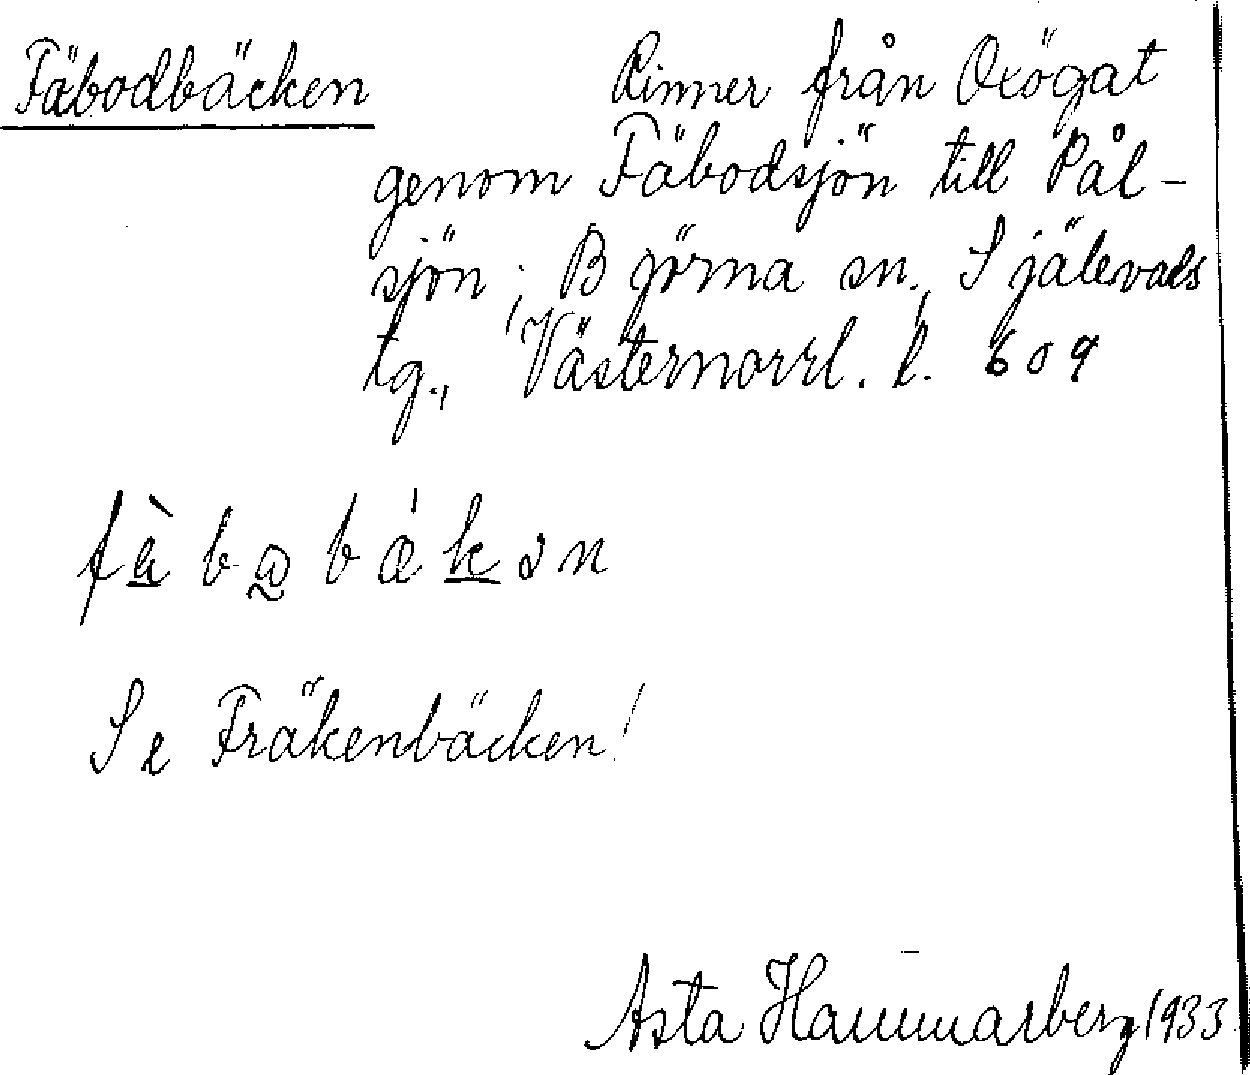 Fäbodbäcken Rinner från Oxögat
genom Fäbodsjön till Pål-
sjön; Björna sn., Själevads
tg., Västernorrl. l. 609
Se Fräkenbäcken!
Asta Hammarberg 1933